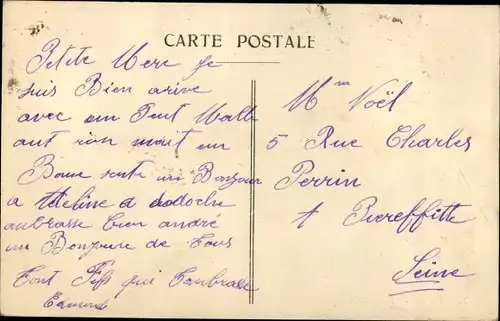 CARTE POSTALE
Petite Mere Je
suis Bien arive
avec om Tent Malle
aut ion mait en
Bonne sente un Bonjour
a Adeline a dodoche
anbrasse bien andré
un Bonjoure de Tous
Tont Fiss qui Tanbrasse
Edmond
Mme Noël
5 Rue Charles
Perrin
à Piereffitte
Seine